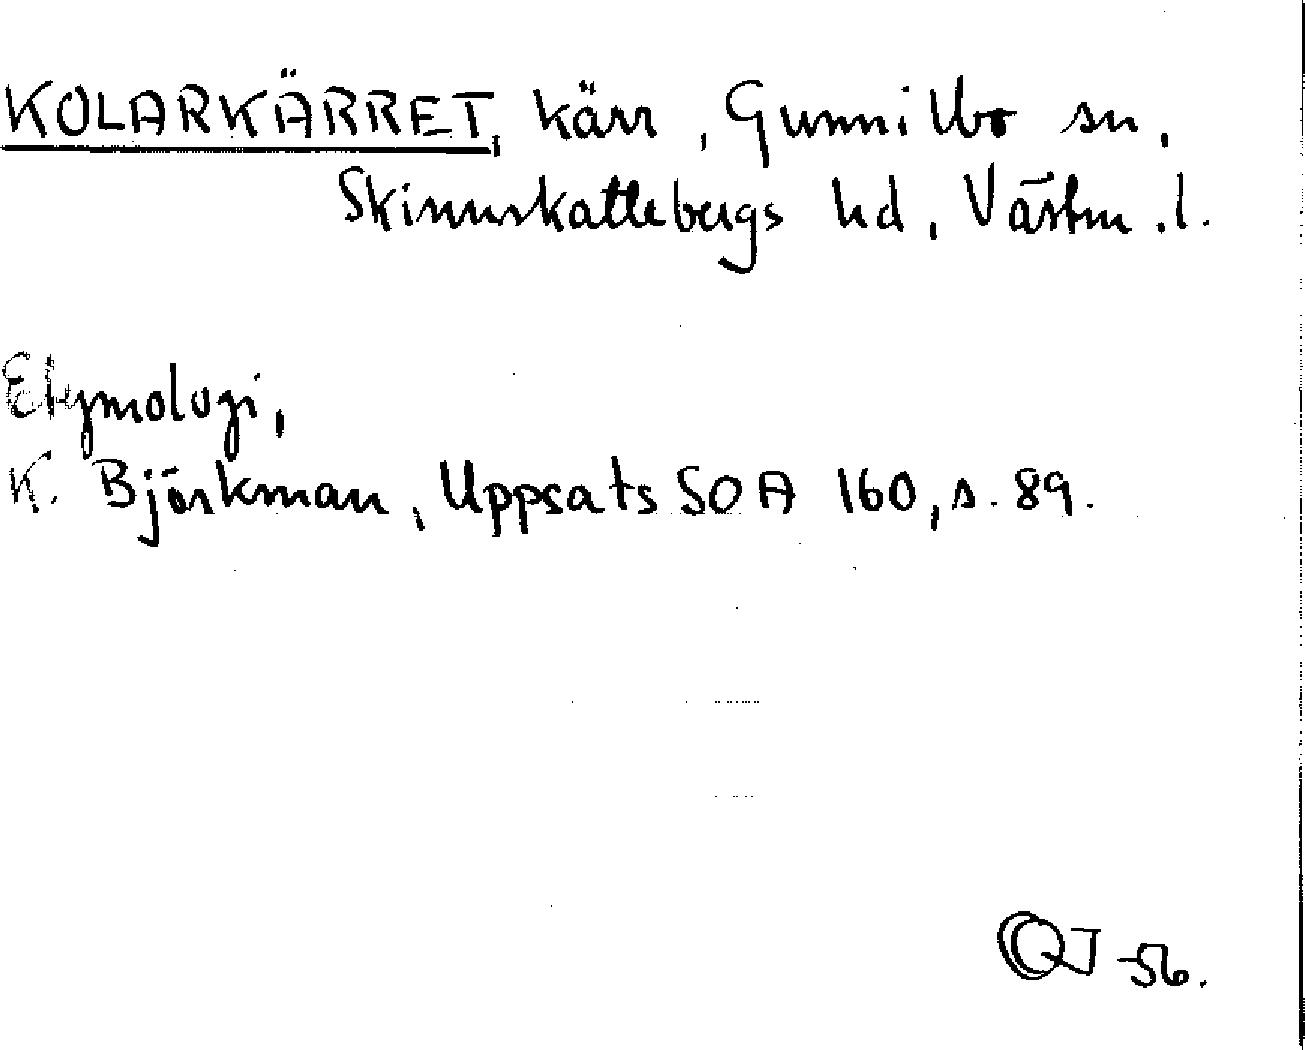 KOLARKÄRRET, kärr, Gunnilbo sn,
Skinnskattebergs hd, Västm.l.
Etymologi,
K. Björkman, Uppsats SOA 160, s. 89.
-56.